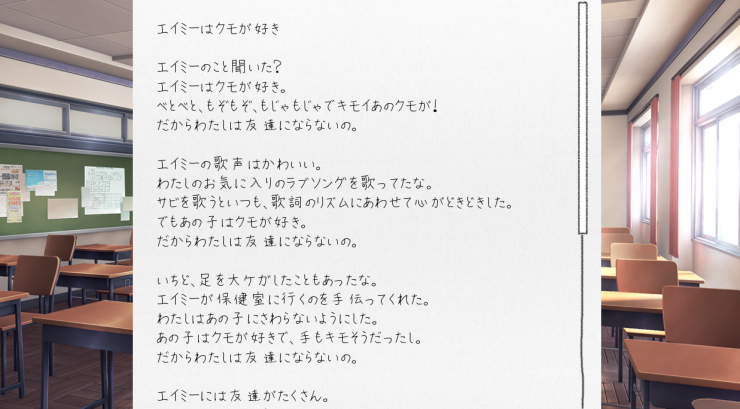 エイミーはクモが好き
エイミーのこと聞いた?
エイミーはクモが好き。
べとべと、もぞもぞ、もじゃもじゃでキモイあのクモが!
だからわたしは友達にならないの。
エイミーの歌声はかわいい。
わたしのお気に入りのラブソングを歌ってたな。
サビを歌うといつも、歌詞のリズムにあわせて心がどきどきした。
でもあの子はクモが好き。
だからわたしは友達にならないの。
いちど、足を大ケガしたこともあったな。
エイミーが保健室に行くのを手伝ってくれた。
わたしはあの子にさわらないようにした。
あの子はクモが好きで、手もキモそうだったし。
だからわたしは友達にならないの。
エイミーには友達がたくさん。